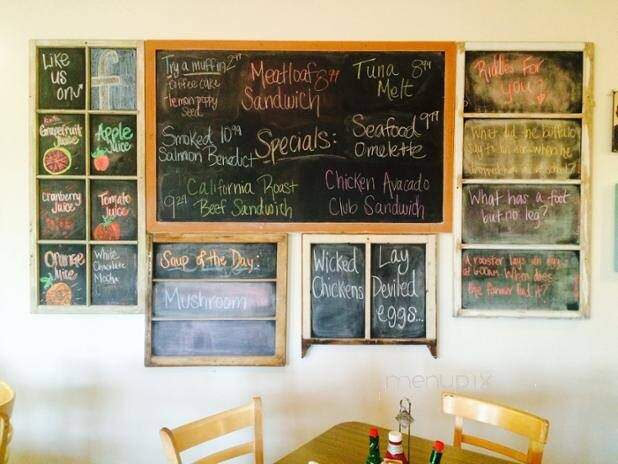 Like
us
on
f
Grapefruit
Juice
Apple
Juice
Cranberry
Juice
Tomato
Juice
Orange
Juice
White
Chocolate
Mocha
Try a muffin 2
Coffee cake
Lemon poppy
Seed
Meatloaf 8
Sandwich
Tuna 8
Melt
Smoked 10
Salmon Benedict
Specials:
Seafood 9
Omelette
California Roast
Beef Sandwich
9
Chicken Avacado
Club Sandwich
Soup of the Day:
Mushroom
Wicked
Chickens
Lay
Deviled
eggs...
Riddles For
you!
What did the buffalo
say to his son when he
What has a foot
but no leg?
A rooster lays an egg
at 6:00am. When does
the farmer find it?
menupix